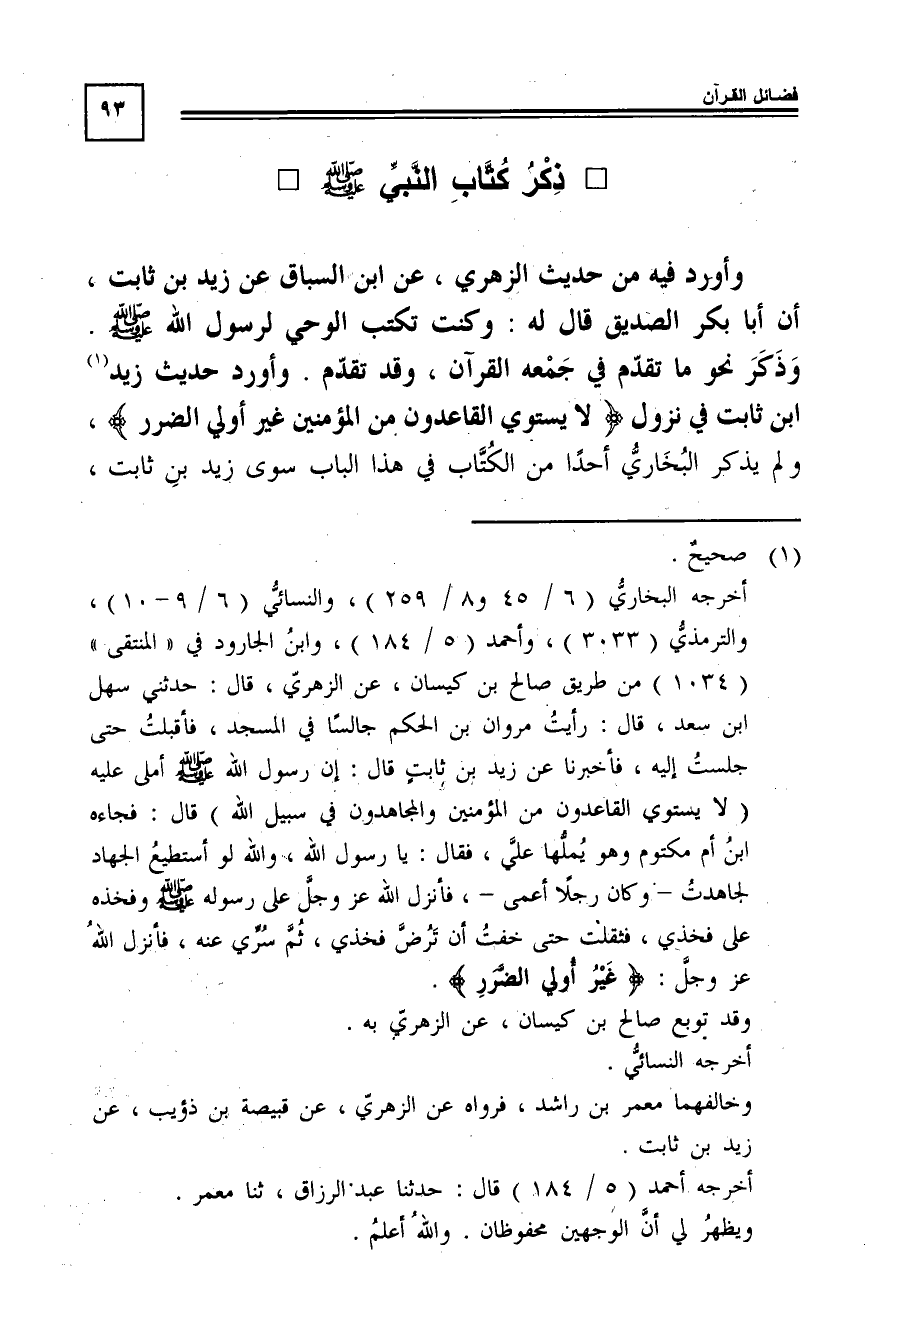 فضائل القرآن
٩٣
□ ذِكْرُ كُتَّابِ النَّبيِّ ﷺ □
وأورد فيه من حديث الزهري ، عن ابن السباق عن زيد بن ثابت ،
أن أبا بكر الصديق قال له : وكنت تكتب الوحي لرسول الله ﷺ .
وَذَكَرَ نحو ما تقدّم في جَمْعه القرآن ، وقد تقدّم . وأورد حديث زيد(١)
ابن ثابت في نزول ﴿ لا يستوي القاعدون من المؤمنين غير أولي الضرر ﴾ ،
ولم يذكر البُخَاريُّ أحدًا من الكُتَّاب في هذا الباب سوى زيد بنِ ثابت ،
(١) صحيحٌ .
أخرجه البخاريُّ ( ٦ / ٤٥ و٨ / ٢٥٩ ) ، والنسائيُّ ( ٦ / ٩ – ١٠ ) ،
والترمذيُّ ( ٣٠٣٣ ) ، وأحمد ( ٥ / ١٨٤ ) ، وابنُ الجارود في « المنتقى »
( ١٠٣٤ ) من طريق صالح بن كيسان ، عن الزهريّ ، قال : حدثني سهل
ابن سعد ، قال : رأيتُ مروان بن الحكم جالسًا في المسجد ، فأقبلتُ حتى
جلستُ إليه ، فأخبرنا عن زيد بن ثابتٍ قال : إن رسول الله ﷺ أملى عليه
( لا يستوي القاعدون من المؤمنين والمجاهدون في سبيل الله ) قال : فجاءه
ابنُ أم مكتوم وهو يُملُّها عليَّ ، فقال : يا رسول الله ، والله لو أستطيعُ الجهاد
لجاهدتُ – وكان رجلًا أعمى – ، فأنزل الله عز وجلَّ على رسوله ﷺ وفخذه
على فخذي ، فثقلت حتى خفتُ أن تَرُضَّ فخذي ، ثُمَّ سُرِّي عنه ، فأنزل اللهُ
عز وجلَّ : ﴿ غَيْرُ أُولي الضَّرَرِ ﴾ .
وقد توبع صالح بن كيسان ، عن الزهريّ به .
أخرجه النسائيُّ .
وخالفهما معمر بن راشد ، فرواه عن الزهريّ ، عن قبيصة بن ذؤيب ، عن
زيد بن ثابت .
أخرجه أحمد ( ٥ / ١٨٤ ) قال : حدثنا عبد الرزاق ، ثنا معمر .
ويظهرُ لي أنَّ الوجهين محفوظان . واللهُ أعلمُ .